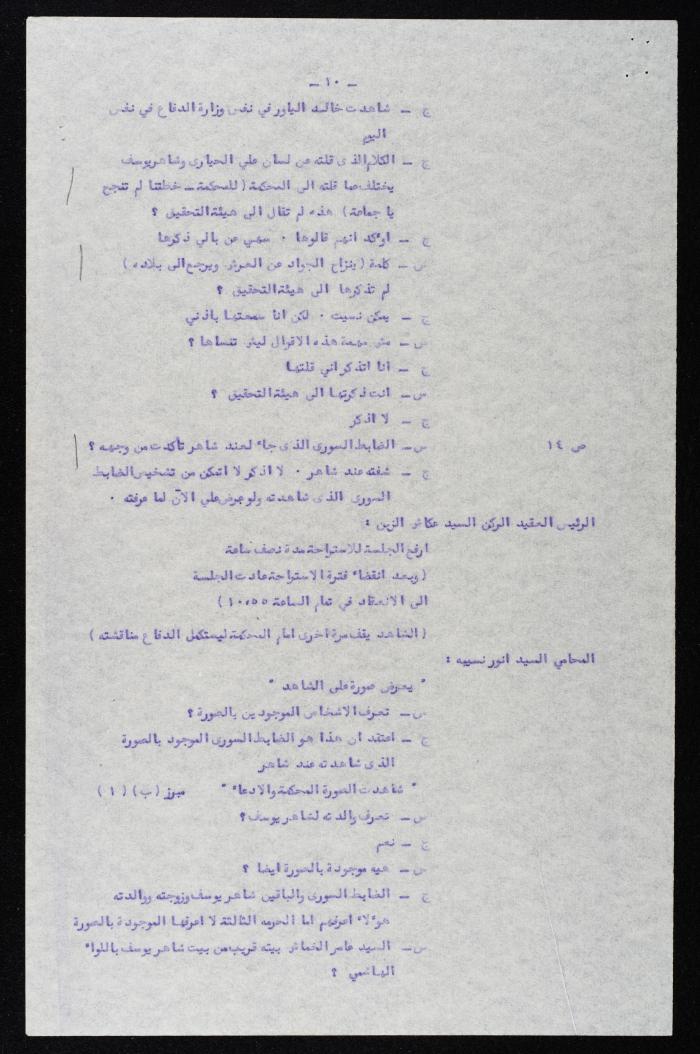 — ١٠ —
ج — شاهدت خالد الياور في نفس وزارة الدفاع في نفس
اليوم
ج — الكلام الذي قلته عن لسان علي الحياري وشاهر يوسف
يختلف عما قلته الى المحكمة ( للمحكمة — خطتنا لم تنجح
يا جماعة ) هذه لم تقال الى هيئة التحقيق ؟
ج — اوءكد انهم قالوها . سهي عن بالي ذكرها
س — كلمة ( ينزاح الجواد عن العرش ويرجع الى بلاده )
لم تذكرها الى هيئة التحقيق ؟
ج — يمكن نسيت . لكن انا سمعتها باذني
س — مش مهمة هذه الاقوال ليش تنساها ؟
ج — انا اتذكر اني قلتها
س — انت ذكرتها الى هيئة التحقيق ؟
ج — لا اذكر
ص ١٤ س — الضابط السوري الذي جاء لعند شاهر تأكدت من وجهه ؟
ج — شفته عند شاهر . لا اذكر لا اتمكن من تشخيص الضابط
السوري الذي شاهدته ولو عرض علي الآن لما عرفته .
الرئيس العقيد الركن السيد عكاش الزبن :
ارفع الجلسة للاستراحة مدة نصف ساعة
( وبعد انقضاء فترة الاستراحة عادت الجلسة
الى الانعقاد في تمام الساعة ١٠،٥٥ )
( الشاهد يقف مرة اخرى امام المحكمة ليستكمل الدفاع مناقشته )
المحامي السيد انور نسيبه :
" يعرض صورة على الشاهد "
س — تعرف الاشخاص الموجودين بالصورة ؟
ج — اعتقد ان هذا هو الضابط السوري الموجود بالصورة
الذي شاهدته عند شاهر
" شاهدت الصورة المحكمة والادعاء " مبرز (ب) (١)
س — تعرف والدته لشاهر يوسف؟
ج — نعم
س — هيه موجودة بالصورة ايضا ؟
ج — الضابط السوري والباقين شاهر يوسف وزوجته ووالدته
هوءلاء اعرفهم اما الحرمه الثالثة لا اعرفها الموجودة بالصورة
س — السيد عامر الخماش بيته قريب من بيت شاهر يوسف باللواء
الهاشمي ؟